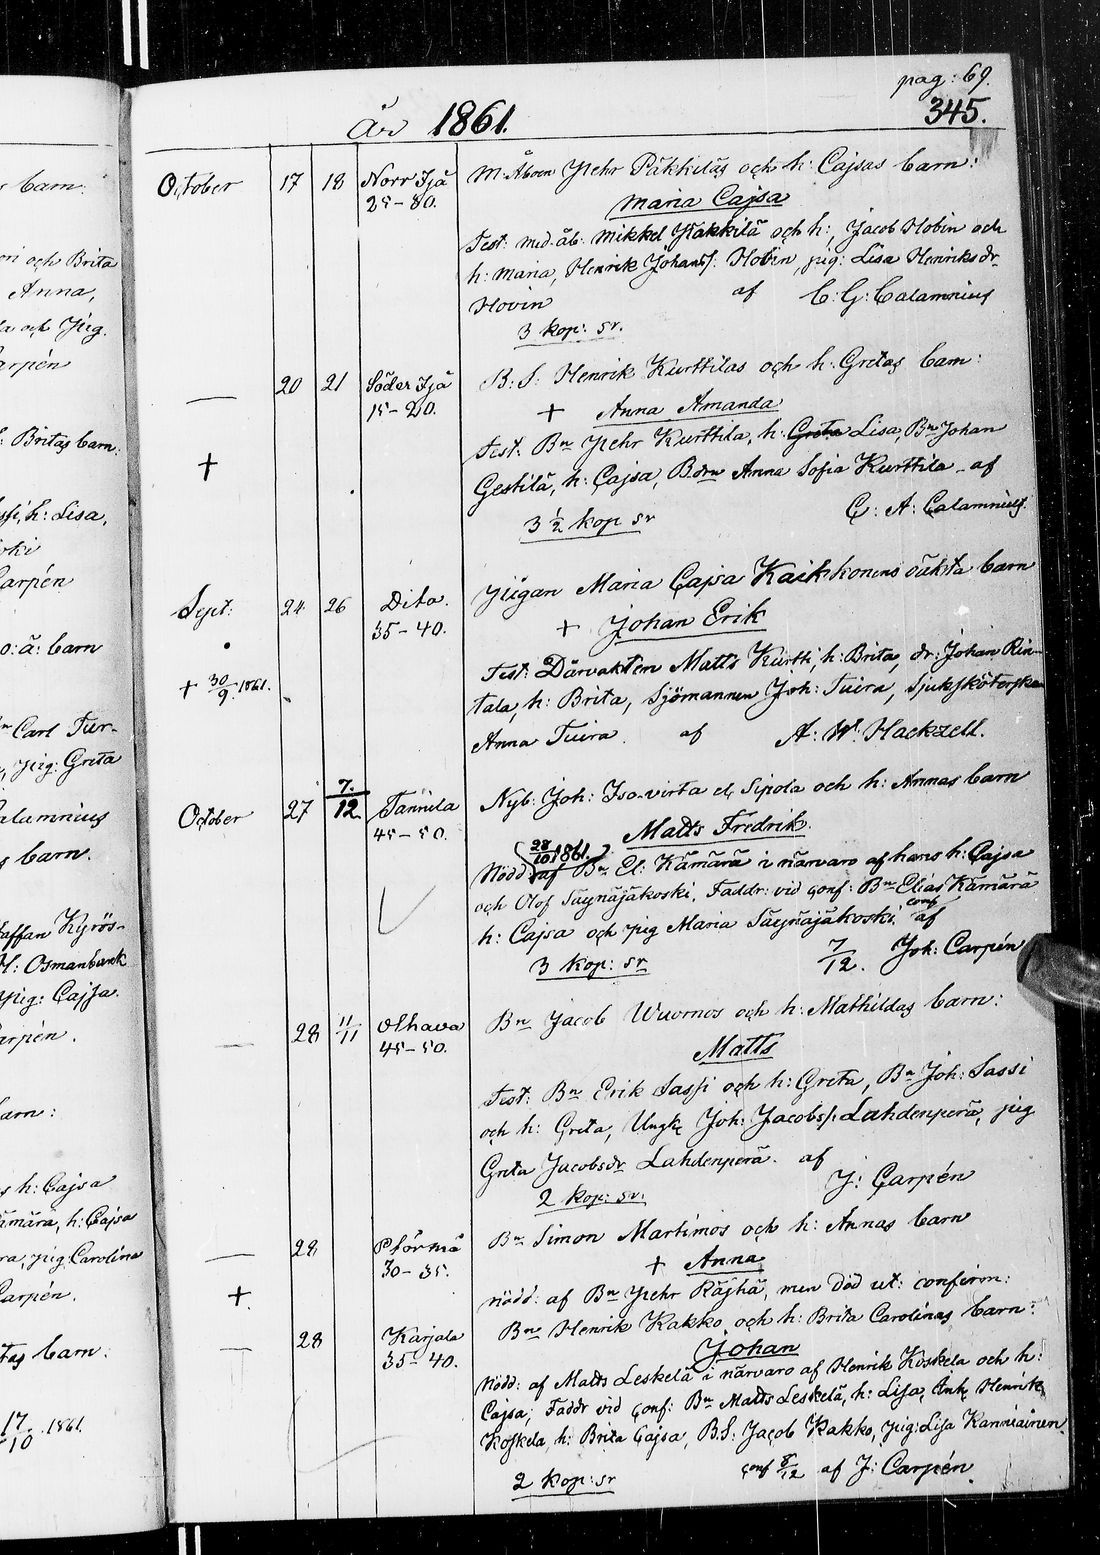 pag: 69.
År 1861.
345.
October 17 18 Norr Ijå
25-30.
M. Åboen Pehr Pakkilas och h: Cajsas barn:
Maria Cajsa
Test: med. åb. Mikkel Pakkilä och h:, Jacob Hobin och
h: Maria, Henrik Johans/: Hobin, pig: Lisa Henriksdr
Hovin af C: G: Calamnius
3 kop: sr.
— 20 21 Söder Ijå
15-20.
B: S: Henrik Kurttilas och h: Gretas barn:
+ Anna Amanda
+
Test: Bn Pehr Kurttila, h: Greta Lisa, Bn Johan
Gestilä, h: Cajsa, B.drn Anna Sofia Kurttila - af
C: A: Calamnius.
3 1/2 kop sr
Sept: 24 26 Dito.
35-40.
Pigan Maria Cajsa Kaikkonens oäkta barn
+ Johan Erik
+ 30/9. 1861.
Test: Dårvakten Matts Kurtti, h: Brita, dr: Johan Rin-
tala, h: Brita, Sjömannen Joh: Tuira, Sjuksköterskan
Anna Tuira. af A: W: Hackzell.
October 27 7/12. Tannila
45-50.
Nyb: Joh: Iso-virta el. Sipola och h: Annas barn
Matts Fredrik.
(28/10 1861.)
Nödd: af Bn El: Kämärä i närvaro af hans h: Cajsa
och Olof Säynäjäkoski. Faddr: vid conf: Bn Elias Kämärä
h: Cajsa och pig Maria Säynäjäkoski. conf af
7/12. Joh: Carpén
3 kop: sr
— 28 11/11 Olhava
45-50.
Bn Jacob Wuornos och h: Mathildas barn:
Matts
Test: Bn Erik Sassi och h: Greta, Bn Joh: Sassi
och h: Greta, Ungk. Joh: Jacobs/: Lahdenperä, pig
Greta Jacobsdr Lahdenperä. af
J: Carpén
2 kop: sr.
— 28
30-35.
Bn Simon Martimos och h: Annas barn
+ Anna
+.
nödd: af Bn Pehr Räihä, men död ut: confirm:
— 28 Karjala
35-40.
Bn Henrik Kakko och h: Brita Carolinas barn:
Johan
Nödd: af Matts Leskelä i närvaro af Henrik Koskela och h:
Cajsa; Faddr vid conf: Bn Matts Leskelä, h: Lisa, Enk. Henrik
Koskela, h: Brita Cajsa, B.S: Jacob Kakko, pig: Lisa Kanniainen.
conf 8/12 af J: Carpén.
2 kop: sr